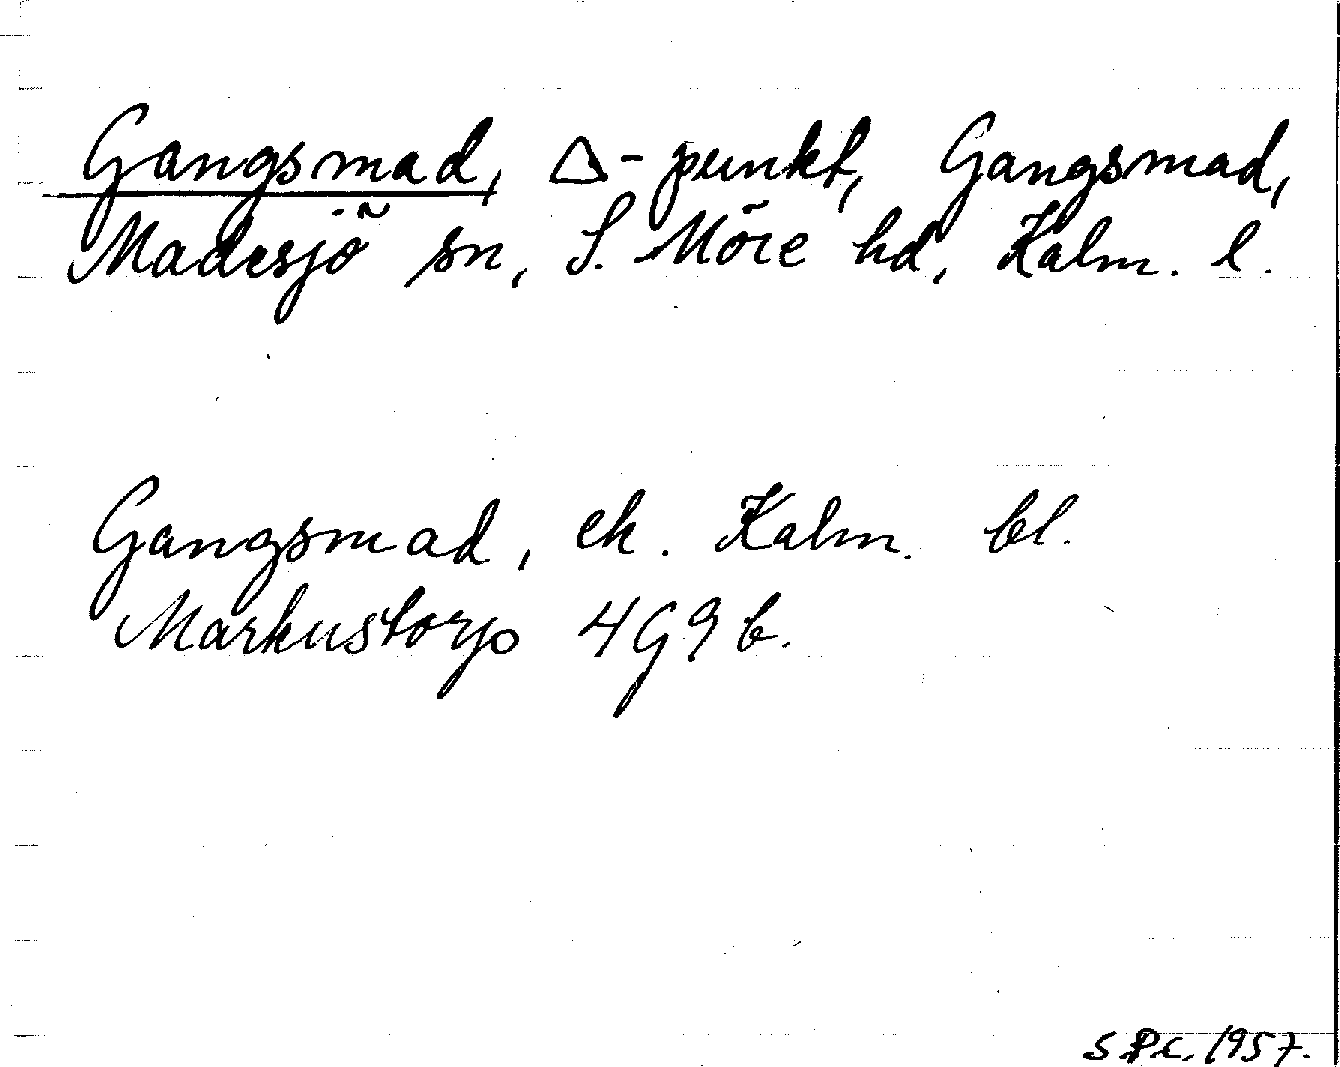 Gangsmad, Δ-punkt, Gangsmad,
Madesjö sn, S. Möre hd, Kalm. l.
Gangsmad, ek. Kalm. bl.
Markustorp 4G9b.
S.P.C. 1957.